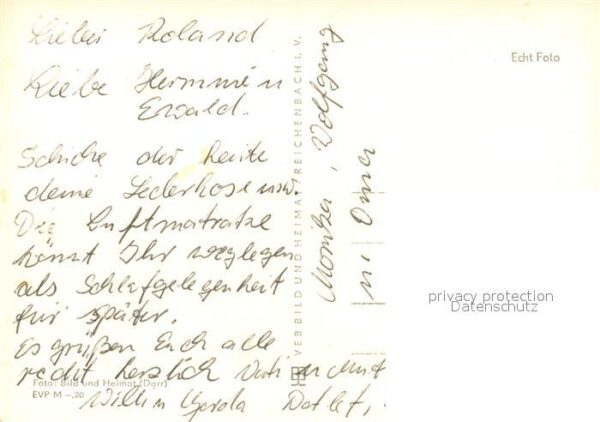 Lieber Roland
Liebe Hermine u
Ewald.
Schicke dir heute
deine Lederhose usw.
Die Luftmatratze
könnt Ihr weglegen
als Schlafgelegenheit
für später.
Es grüßen Euch alle
recht herzlich Vati u Mutti
Gerda Detlef,
Monika, Wolfgang
u Oma
Echt Foto
VEB BILD UND HEIMAT REICHENBACH I. V.
Foto: Bild und Heimat (Darr)
EVP M –,20
privacy protection
Datenschutz